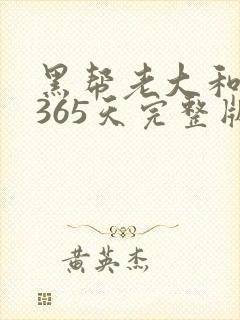 黑帮老大和
365天完整版
黄英杰